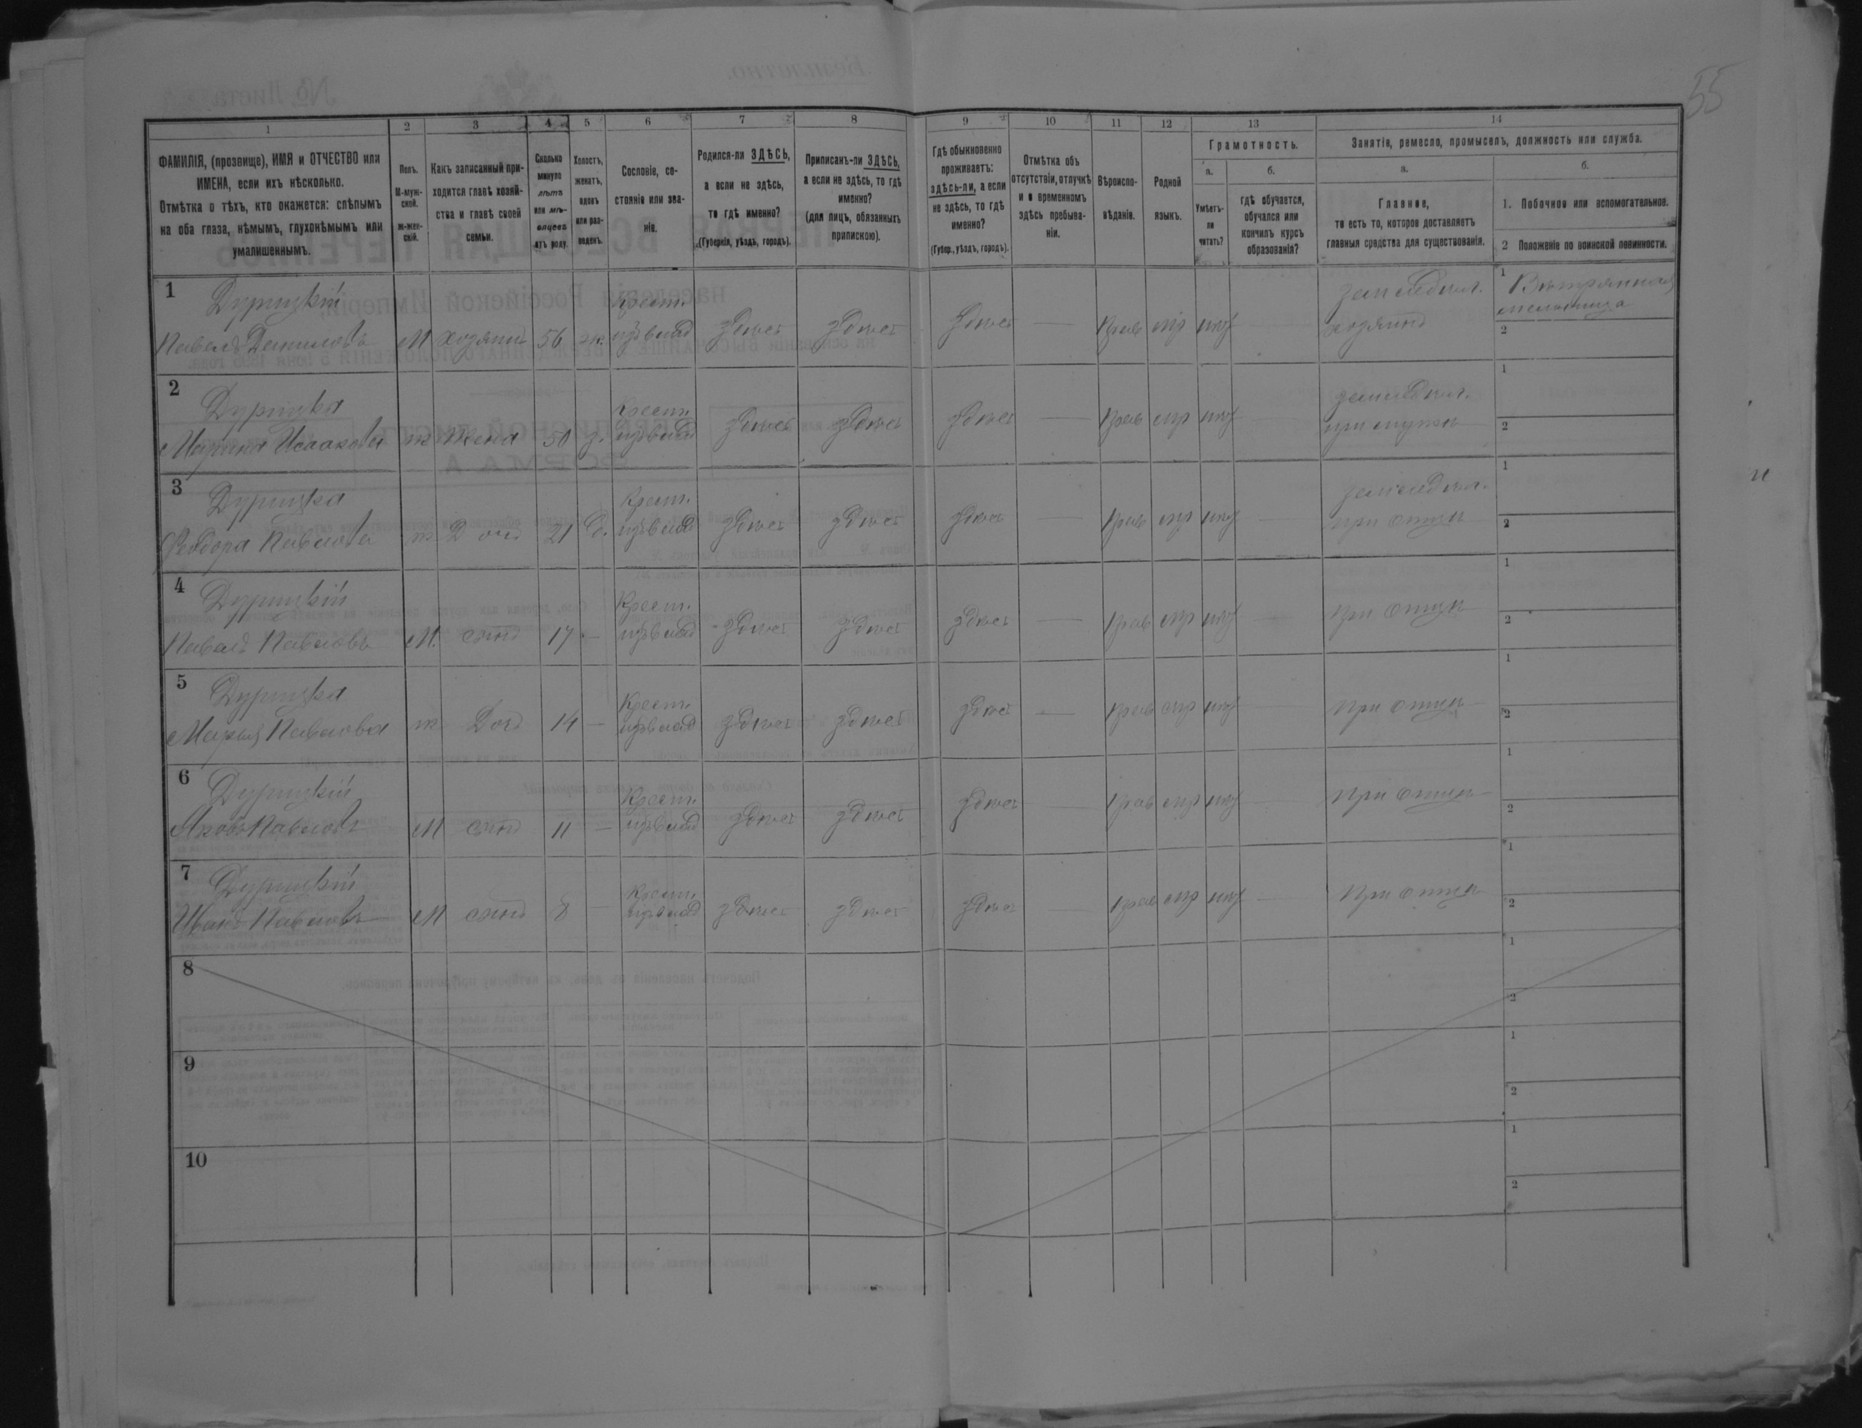 55
1 2 3 4 5 6 7 8 9 10 11 12 13 14
ФАМИЛІЯ, (прозвище), ИМЯ и ОТЧЕСТВО или
ИМЕНА, если ихъ нѣсколько.
Отмѣтка о тѣхъ, кто окажется: слѣпымъ
на оба глаза, нѣмымъ, глухонѣмымъ или
умалишеннымъ.
Полъ.
М-муж-
ской.
ж-жен-
скій.
Какъ записанный при-
ходится главѣ хозяй-
ства и главѣ своей
семьи.
Сколько
минуло
лѣтъ
или мѣ-
сяцевъ
отъ роду.
Холостъ,
женатъ,
вдовъ
или раз-
веденъ.
Сословіе, со-
стояніе или зва-
ніе.
Родился-ли ЗДѢСЬ,
а если не здѣсь,
то гдѣ именно?
(Губернія, уѣздъ, городъ).
Приписанъ-ли ЗДѢСЬ,
а если не здѣсь, то гдѣ
именно?
(для лицъ, обязанныхъ
припискою).
Гдѣ обыкновенно
проживаетъ:
здѣсь-ли, а если
не здѣсь, то гдѣ
именно?
(Губер., уѣздъ, городъ).
Отмѣтка объ
отсутствіи, отлучкѣ
и о временномъ
здѣсь пребыва-
ніи.
Вѣроиспо-
вѣданіе.
Родной
языкъ.
Грамотность.
а.
Умѣетъ-
ли
читать?
б.
гдѣ обучается,
обучался или
кончилъ курсъ
образованія?
Занятіе, ремесло, промыселъ, должность или служба.
а.
Главное,
то есть то, которое доставляетъ
главныя средства для существованія.
б.
1. Побочное или вспомогательное.
2 Положеніе по воинской повинности.
1 Дурицкій Крест. земледѣл. 1 Вѣтрянная
Павелъ Даниловъ М хозяинъ 56 ж. изъ влад здѣсь здѣсь здѣсь — Прав мр нѣт хозяинъ мельница
2
2 Дурицка Крест. земледѣл. 1
Марина Исаакова ж жена 50 з. изъ влад здѣсь здѣсь здѣсь — Прав мр нѣт при мужѣ 2
3 Дурицка Крест. земледѣл. 1
Феодора Павлова ж Дочь 21 д. изъ влад здѣсь здѣсь здѣсь — Прав мр нѣт — при отцѣ 2
4 Дурицкій Крест. 1
Павелъ Павловъ М. сынъ 17 — изъ влад здѣсь здѣсь здѣсь — Прав мр нѣт — при отцѣ 2
5 Дурицка Крест. 1
Марья Павлова ж Дочь 14 — изъ влад здѣсь здѣсь здѣсь — Прав мр нѣт — при отцѣ 2
6 Дурицкій Крест. 1
Яковъ Павловъ М сынъ 11 — изъ влад здѣсь здѣсь здѣсь — Прав мр нѣт — при отцѣ 2
7 Дурицкій Крест. 1
Иванъ Павловъ М сынъ 8 — изъ влад здѣсь здѣсь здѣсь — Прав мр нѣт — при отцѣ 2
8 1
2
9 1
2
10 1
2